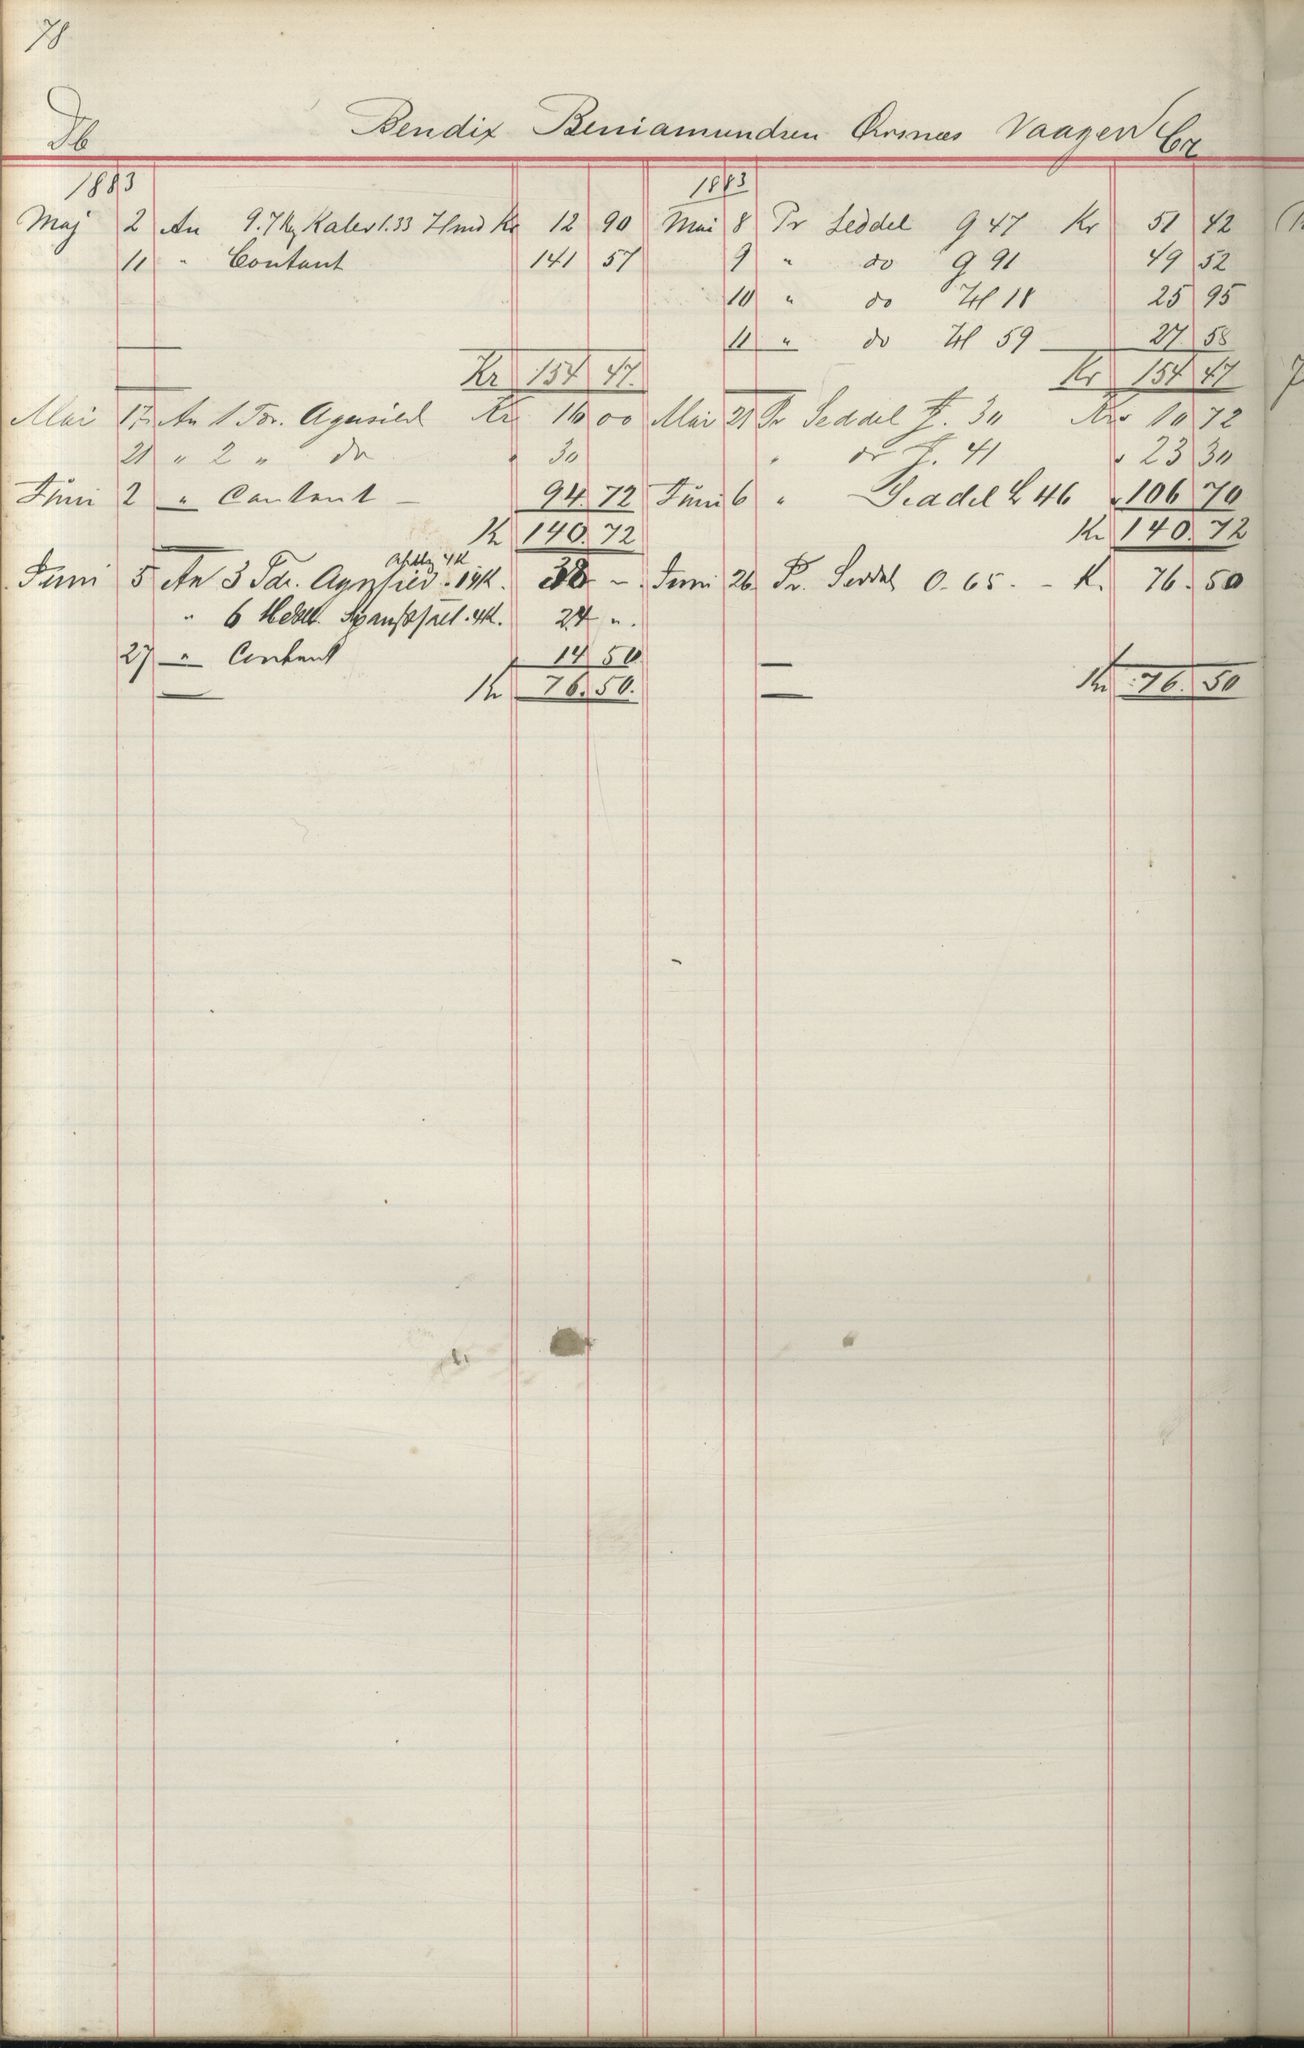 78
Db Bendix Beniamundsen Ørsnæs Vaagen Cr
1883 1883
Maj 2 An 9.7 Kg Kabel 1.33 Hmd Kr 12 90 Mai 8 Pr Seddel G 47 Kr 51 42
11 " Contant 141 57 9 " do G 91 49 52
10 " do H 18 25 95
11 " do H 59 27 58
Kr 154 47. Kr 154 47
Mai 17 An 1 Tdr. Agnsild Kr 16 00 Mai 21 Pr Seddel J. 30 Kr 10 72
21 " 2 " do " 30 " do J. 41 " 23 30
Juni 2 " Contant - 94.72 Juni 6 " Seddel L 46 " 106 70
Kr 140.72 Kr 140.72
4K
Juni 5 An 3 Tdr. Agnsild. 14K. 38 " Juni 26 Pr. Seddel O. 65. - K. 76.50
" 6 4K. 24 ".
27 " Contant 14 50
Kr 76.50. Kr 76.50